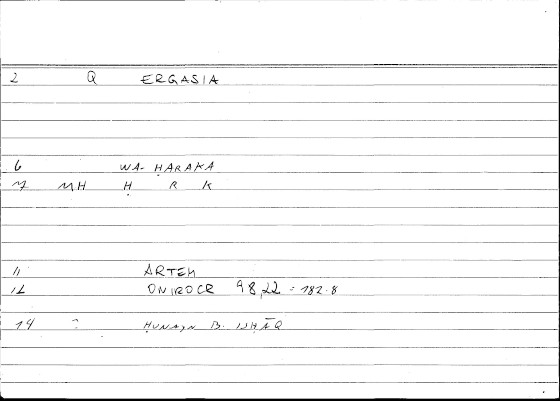 2 Q ERGASIA
6 WA- ḤARAKA
7 MH Ḥ R K
11 ARTEM
12 ONIROCR 98,22 = 182.8
14 : ḤUNAIN B. ISḤĀQ